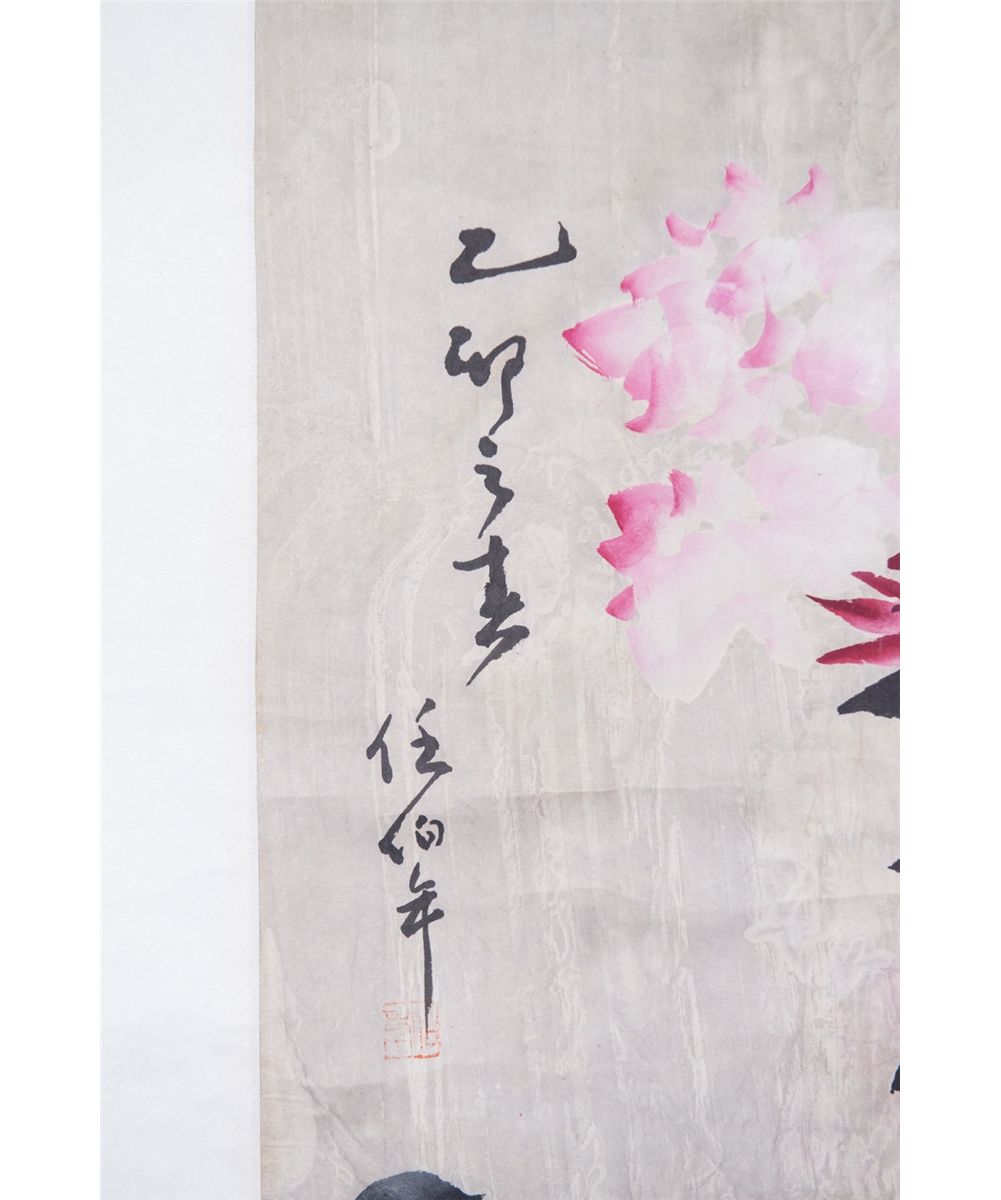 乙卯之春
任伯年